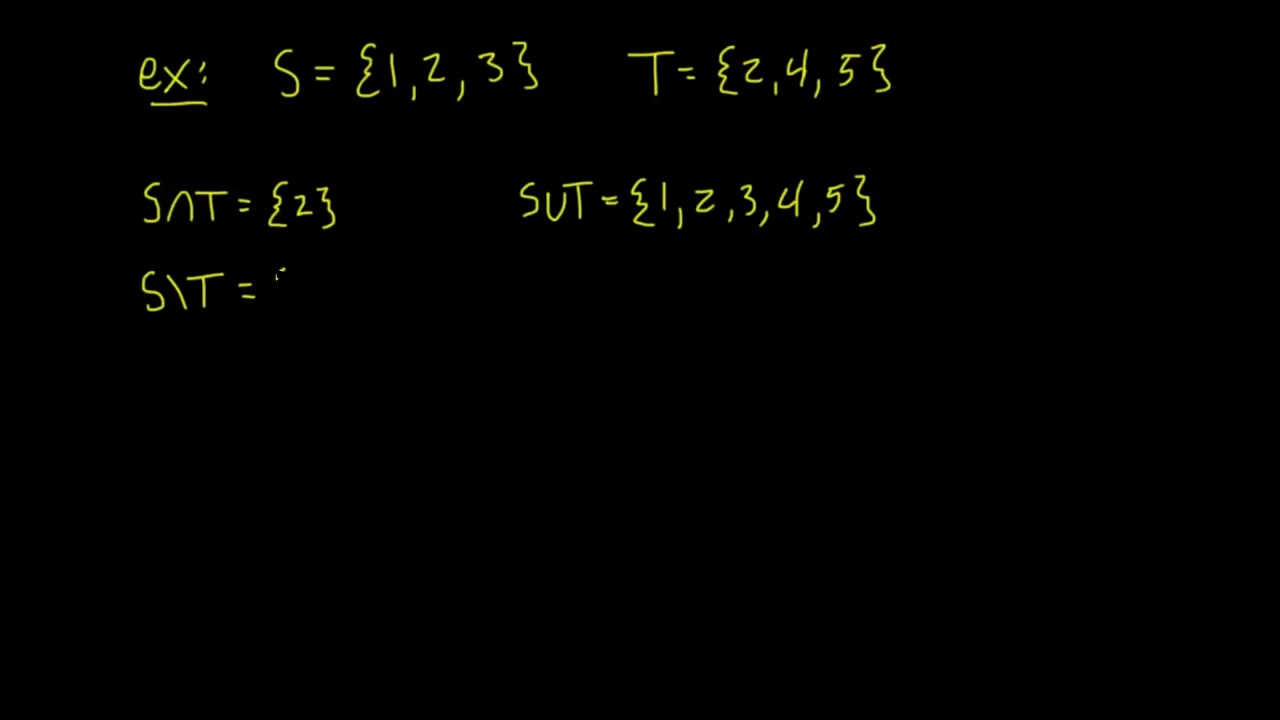 ex: S = {1, 2, 3} T = {2, 4, 5}
S∩T = {2} S∪T = {1, 2, 3, 4, 5}
S\T =